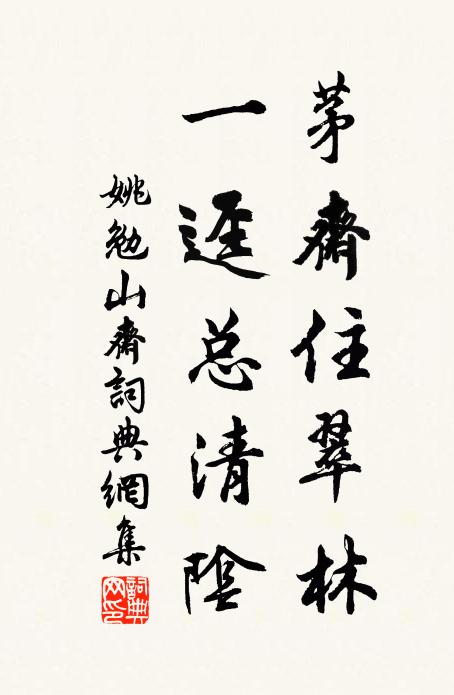 茅齋住翠林
一逕总清陰
姚勉山齋詞典網集
詞典網印